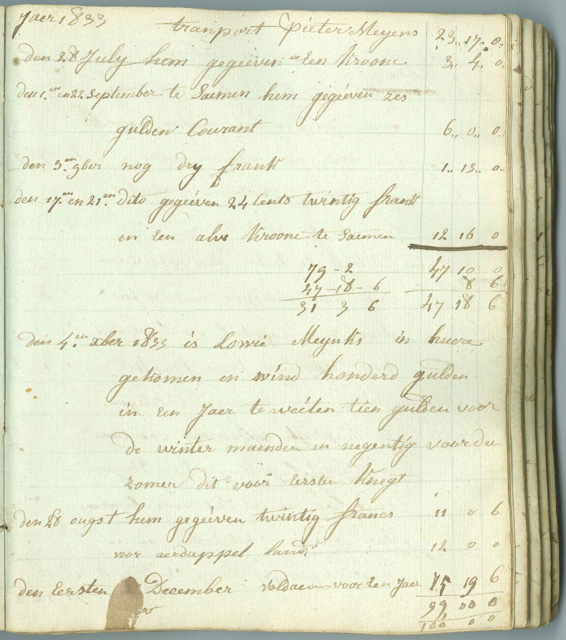 Jaer 1833
tranport Pieter Meyens 23.. 17. 0.
den 28 July hem gegeéven een Kroone 3. 4. 0
den 1.en en 22 September te Saemen hem gegeéven zes
gulden Courant 6.. 0.. 0.
den 3.en 9ber nog dry frank 1.. 13.. 0.
den 17.en en 21.en dito gegeéven 24 Cents twintig frank
en Een alve Kroone te Saemen 12 16 0
79 - 2 47 10 0
47 - 18 - 6 8 6
31 3 6 47 18 6
den 4.en xber 1833 is Lowie Meynks in huere
gekomen en wind honderd gulden
in een Jaer te weéten tien gulden voor
de winter maenden en negentig voor dee
zomer dit voor Eersten Knegt
den 28 ougst hem gegeéven twintig francs 11 0 6
voor aerdappel land 12 0 0
den Eersten December voldaen voor Een Jaer 75 19 6
99 00 0
100 0 0